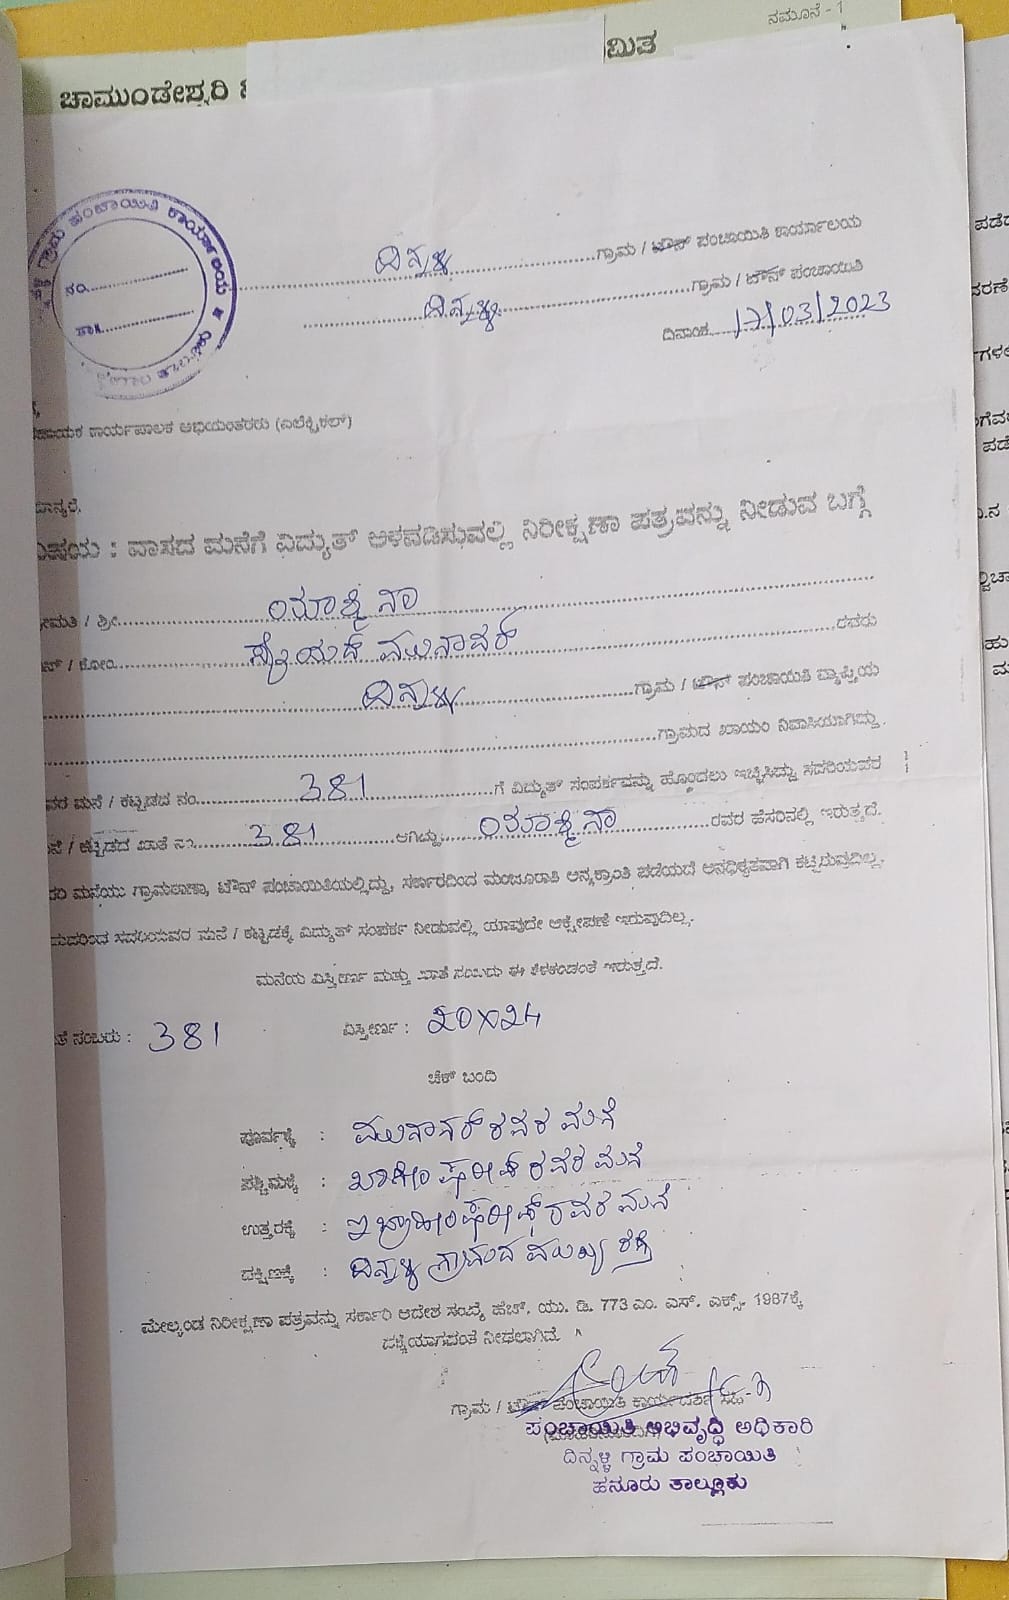 ನಮೂನೆ - 1
ಮಿತ
ಚಾಮುಂಡೇಶ್ವರಿ
ಗ್ರಾಮ ಪಂಚಾಯಿತಿ ಕಾರ್ಯಾಲಯ
ನಂ
ದಿನ್ನಳ್ಳಿ ಗ್ರಾಮ / ಟೌನ್ ಪಂಚಾಯಿತಿ ಕಾರ್ಯಾಲಯ
ದಿನ್ನಳ್ಳಿ ಗ್ರಾಮ / ಟೌನ್ ಪಂಚಾಯಿತಿ
ದಿನಾಂಕ 17/03/2023
ಕಾರ್ಯಪಾಲಕ ಅಭಿಯಂತರರು (ಎಲೆಕ್ಟ್ರಿಕಲ್)
ಮಾನ್ಯರೆ,
ವಿಷಯ : ವಾಸದ ಮನೆಗೆ ವಿದ್ಯುತ್ ಅಳವಡಿಸುವಲ್ಲಿ ನಿರೀಕ್ಷಣಾ ಪತ್ರವನ್ನು ನೀಡುವ ಬಗ್ಗೆ
/ ಶ್ರೀ
/ ಕೋಂ ಸೈಯದ್ ಮುನಾವರ್ ರವರು
ದಿನ್ನಳ್ಳಿ ಗ್ರಾಮ / ಟೌನ್ ಪಂಚಾಯಿತಿ ವ್ಯಾಪ್ತಿಯ
ಗ್ರಾಮದ ಖಾಯಂ ನಿವಾಸಿಯಾಗಿದ್ದು,
ಮನೆ / ಕಟ್ಟಡದ ನಂ. 381 ಗೆ ವಿದ್ಯುತ್ ಸಂಪರ್ಕವನ್ನು ಹೊಂದಲು ಇಚ್ಛಿಸಿದ್ದು ಸದರಿಯವರ
/ ಕಟ್ಟಡದ ಖಾತೆ ನಂ 381 ಆಗಿದ್ದು, ರವರ ಹೆಸರಿನಲ್ಲಿ ಇರುತ್ತದೆ.
ಮನೆಯು ಗ್ರಾಮಠಾಣಾ, ಟೌನ್ ಪಂಚಾಯಿತಿಯಲ್ಲಿದ್ದು, ಸರ್ಕಾರದಿಂದ ಮಂಜೂರಾತಿ ಅನ್ಯಕ್ರಾಂತಿ ಪಡೆಯದೆ ಅನಧಿಕೃತವಾಗಿ ಕಟ್ಟಿರುವುದಿಲ್ಲ.
ಸದರಿಯವರ ಮನೆ / ಕಟ್ಟಡಕ್ಕೆ ವಿದ್ಯುತ್ ಸಂಪರ್ಕ ನೀಡುವಲ್ಲಿ ಯಾವುದೇ ಆಕ್ಷೇಪಣೆ ಇರುವುದಿಲ್ಲ.
ಮನೆಯ ವಿಸ್ತೀರ್ಣ ಮತ್ತು ಖಾತೆ ನಂಬರು ಈ ಕೆಳಕಂಡಂತೆ ಇರುತ್ತದೆ.
ನಂಬರು : 381 ವಿಸ್ತೀರ್ಣ : 20X24
ಚೆಕ್ ಬಂದಿ
ಪೂರ್ವಕ್ಕೆ : ಮುನಾವರ್ ರವರ ಮನೆ
ಪಶ್ಚಿಮಕ್ಕೆ : ಷರೀಫ್ ರವರ ಮನೆ
ಉತ್ತರಕ್ಕೆ : ಇಬ್ರಾಹಿಂ ಷರೀಫ್ ರವರ ಮನೆ
ದಕ್ಷಿಣಕ್ಕೆ : ದಿನ್ನಳ್ಳಿ ಗ್ರಾಮದ ಮುಖ್ಯ ರಸ್ತೆ
ಮೇಲ್ಕಂಡ ನಿರೀಕ್ಷಣಾ ಪತ್ರವನ್ನು ಸರ್ಕಾರಿ ಆದೇಶ ಸಂಖ್ಯೆ ಹೆಚ್. ಯು. ಡಿ. 773 ಎಂ. ಎಸ್. ಎಕ್ಸ್. 1987ಕ್ಕೆ
ನೀಡಲಾಗಿದೆ.
ಗ್ರಾಮ / ಟೌನ್ ಪಂಚಾಯಿತಿ ಕಾರ್ಯದರ್ಶಿ ಸಹಿ
ಪಂಚಾಯಿತಿ ಅಭಿವೃದ್ಧಿ ಅಧಿಕಾರಿ
ದಿನ್ನಳ್ಳಿ ಗ್ರಾಮ ಪಂಚಾಯಿತಿ
ಹನೂರು ತಾಲ್ಲೂಕು